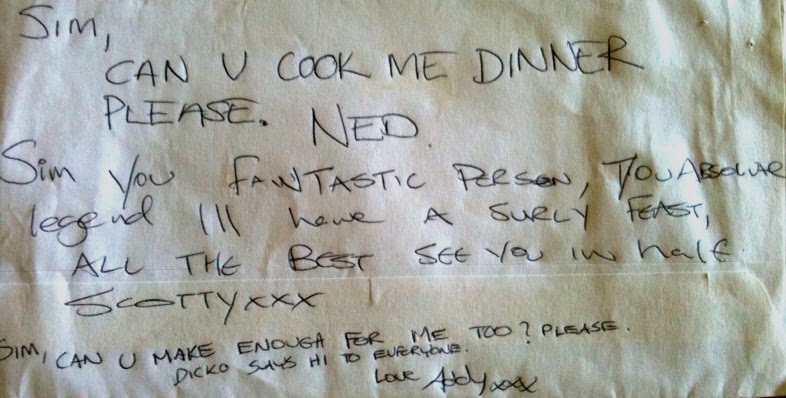 SIM,
CAN U COOK ME DINNER
PLEASE. NED.
Sim You FANTASTIC PERSON, YOU ABSOLUTE
legend I'll have A SURLY FEAST,
ALL THE BEST SEE YOU IN half.
SCOTTY xxx
SIM, CAN U MAKE ENOUGH FOR ME TOO? PLEASE.
DICKO SAYS HI TO EVERYONE.
LOVE Addy xxx